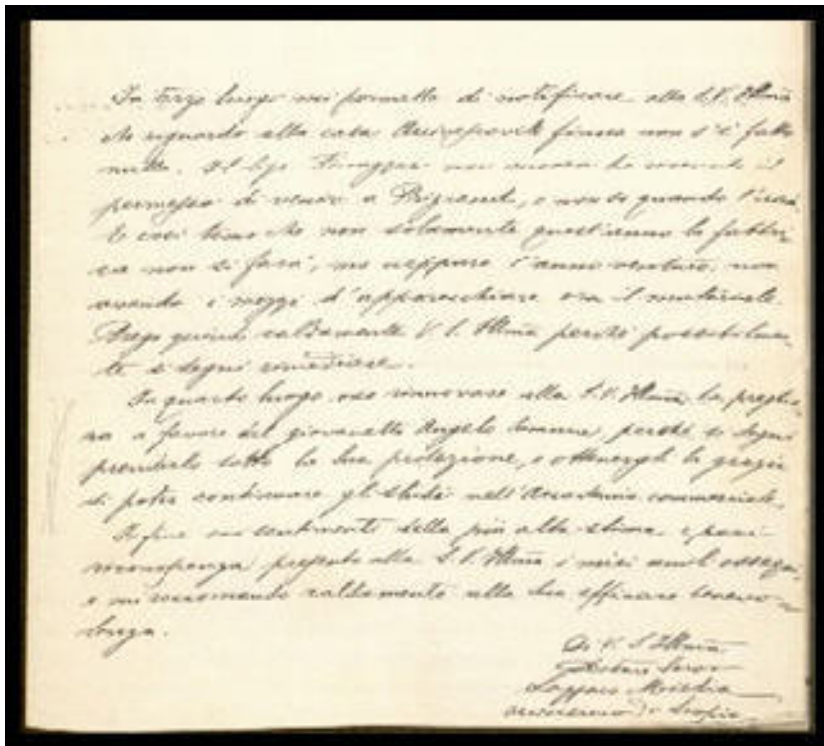 In terzo luogo mi permetto di notificare alla S.V. Illma
che riguardo alla casa Arcivescovile finora non s'è fatto
nulla. Il Sigr non ancora ha ricevuto il
permesso di venire a Prizrend, e non so quando l'avrà
E così temo che non solamente quest'anno la fabbri-
ca non si farà, ma neppure l'anno venturo, non
avendo i mezzi d'apparecchiare ora il materiale.
Prego quindi caldamente V. S. Illma perchè possibilmen-
te si degni rimediare.
In quarto luogo oso rinnovare alla S.V. Illma la preghie-
ra a favore del giovanetto Angelo perchè si degni
prenderlo sotto la Sua protezione, e ottenergli la grazia
di poter continuare gli studi nell'Accademia commerciale.
Infine coi sentimenti della più alta stima e
riconoscenza presento alla S.V. Illma i miei umili ossequi,
e mi raccomando caldamente alla Sua efficace benevo-
lenza.
Di V. S. Illma
Lazzaro Miedia
Arcivescovo di Scopia